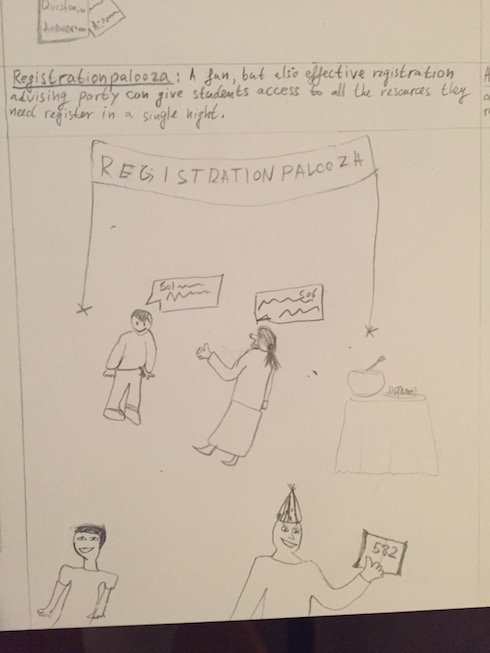 Question
Answer
Registrationpalooza: A fun, but also effective registration
advising party can give students access to all the resources they
need register in a single night.
REGISTRATIONPALOOZA
501
506
582